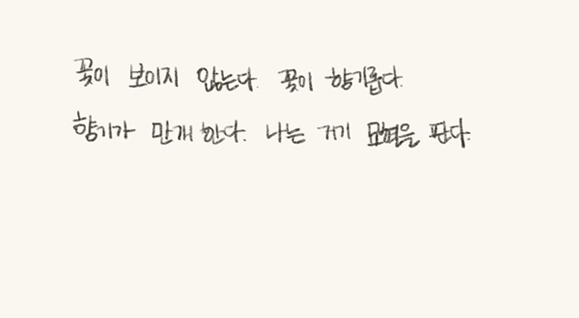 꽃이 보이지 않는다. 꽃이 향기롭다.
향기가 만개한다. 나는 거기 묘혈을 판다.